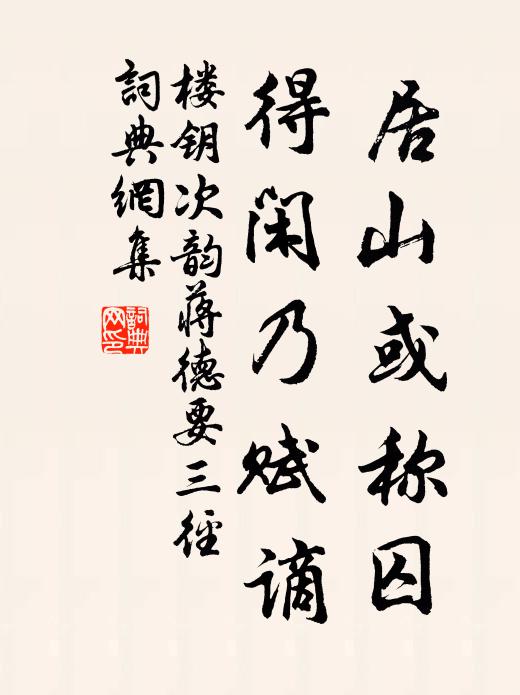 居山或称囚
得闲乃赋谪
楼钥次韵蒋德要三径
詞典網集
詞典網印